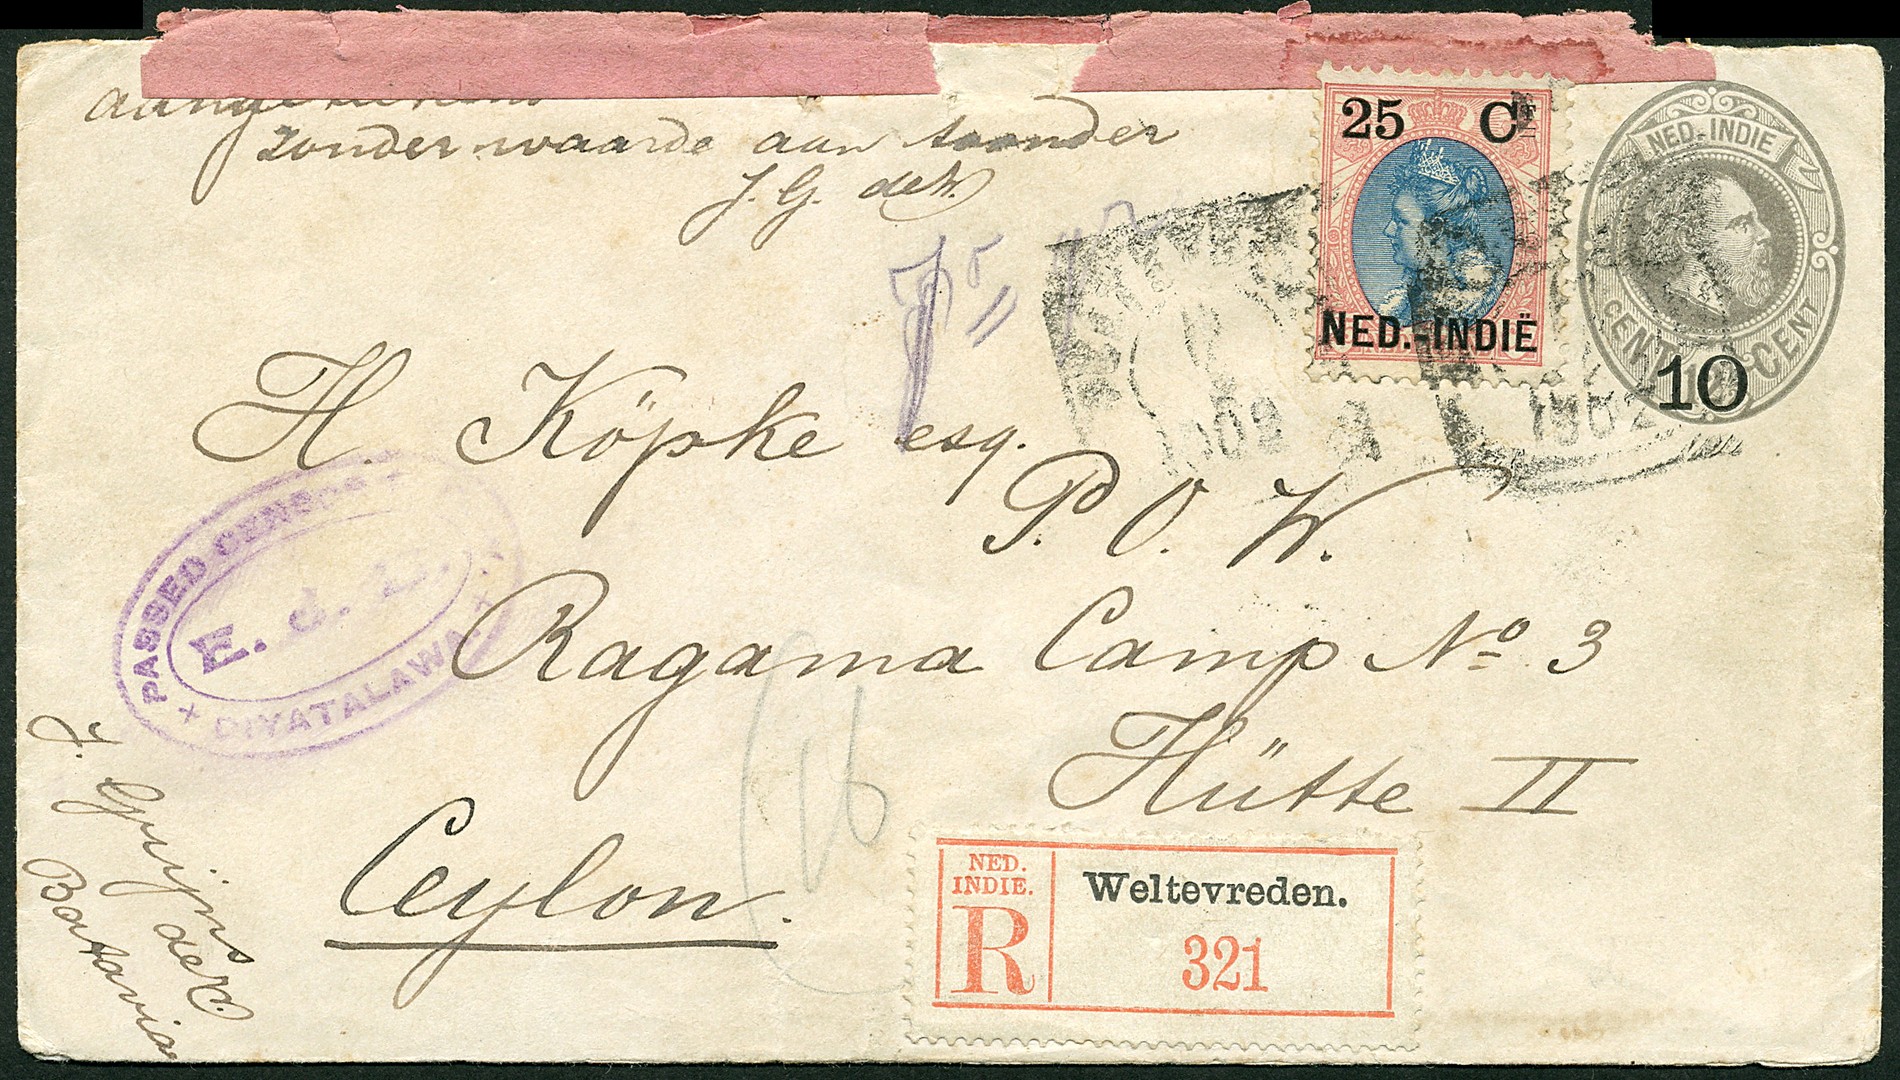 aangetekend
zonder waarde aan toonder
J. G. dek.
25 Ct
NED.-INDIË
NED.-INDIE
CENT CENT
10
1902
1902
H. Köpke esq.
P. O. W.
Ragama Camp No 3
Hütte II
Ceylon.
PASSED CENSOR
E. J. L.
DIYATALAWA.
16
J. Grijns
dek.
Batavia
NED.
INDIE.
R
Weltevreden.
321